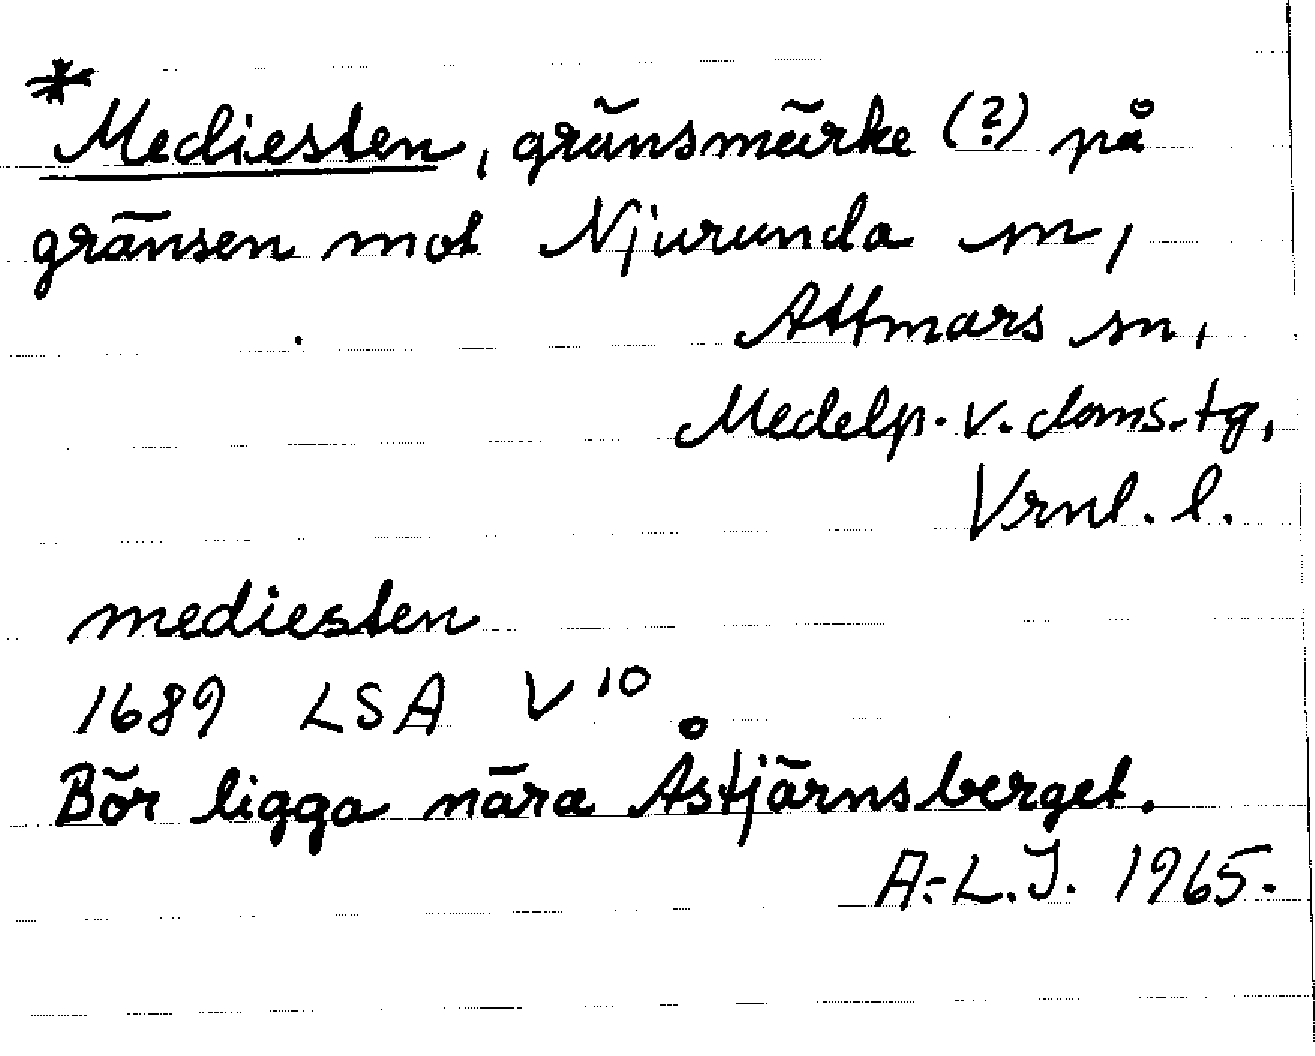 *Mediesten, gränsmärke (?) på
gränsen mot Njurunda sn,
Attmars sn,
Medelp. v. doms. tg,
Vrnl. l.
mediesten
1689 LSA V 10
Bör ligga nära Åstjärnsberget.
A.-L. J. 1965.